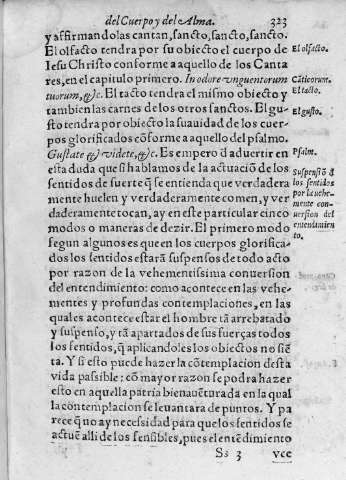 del Cuerpo y del Alma. 323
y affirmandolas cantan, sancto, sancto, sancto.
El olfacto tendra por su obiecto el cuerpo de
Iesu Christo conforme a aquello de los Canta
res, en el capitulo primero. In odore vnguentorum
tuorum, &c. El tacto tendra el mismo obiecto y
tambien las carnes de los otros sanctos. El gu-
sto tendra por obiecto la suauidad de los cuer-
pos glorificados cõforme a aquello del psalmo.
Gustate & videte, &c. Es empero đ advertir en
esta duda que si hablamos de la actuaciõ de los
sentidos de suerte q̃ se entienda que verdadera
mente huelen y verdaderamente comen, y ver
daderamente tocan, ay en este particular cinco
modos o maneras de dezir. El primero modo
segun algunos es que en los cuerpos glorifica-
dos los sentidos estarã suspensos de todo acto
por razon de la vehementissima conuersion
del entendimiento: como acontece en las vehe-
mentes y profundas contemplaciones, en las
quales acontece estar el hombre tã arrebatado
y suspenso, y tã apartados de sus fuerças todos
los sentidos, q̃ aplicandoles los obiectos no siẽ
ta. Y si esto puede hazer la cõtemplacion desta
vida passible: cõ mayor razon se podra hazer
esto en aquella patria bienauẽturada en la qual
la contemplacion se leuantara de puntos. Y pa
rece q̃ no ay necessidad para que los sentidos se
actuẽ alli de los sensibles, pues el entẽdimiento
Ss 3 vee
El olfacto.
Cãticorum.
El tacto.
El gusto.
Psalm.
Suspensiõ đ
los sentidos
por la vehe-
mente con-
uersion del
entendimien
to.